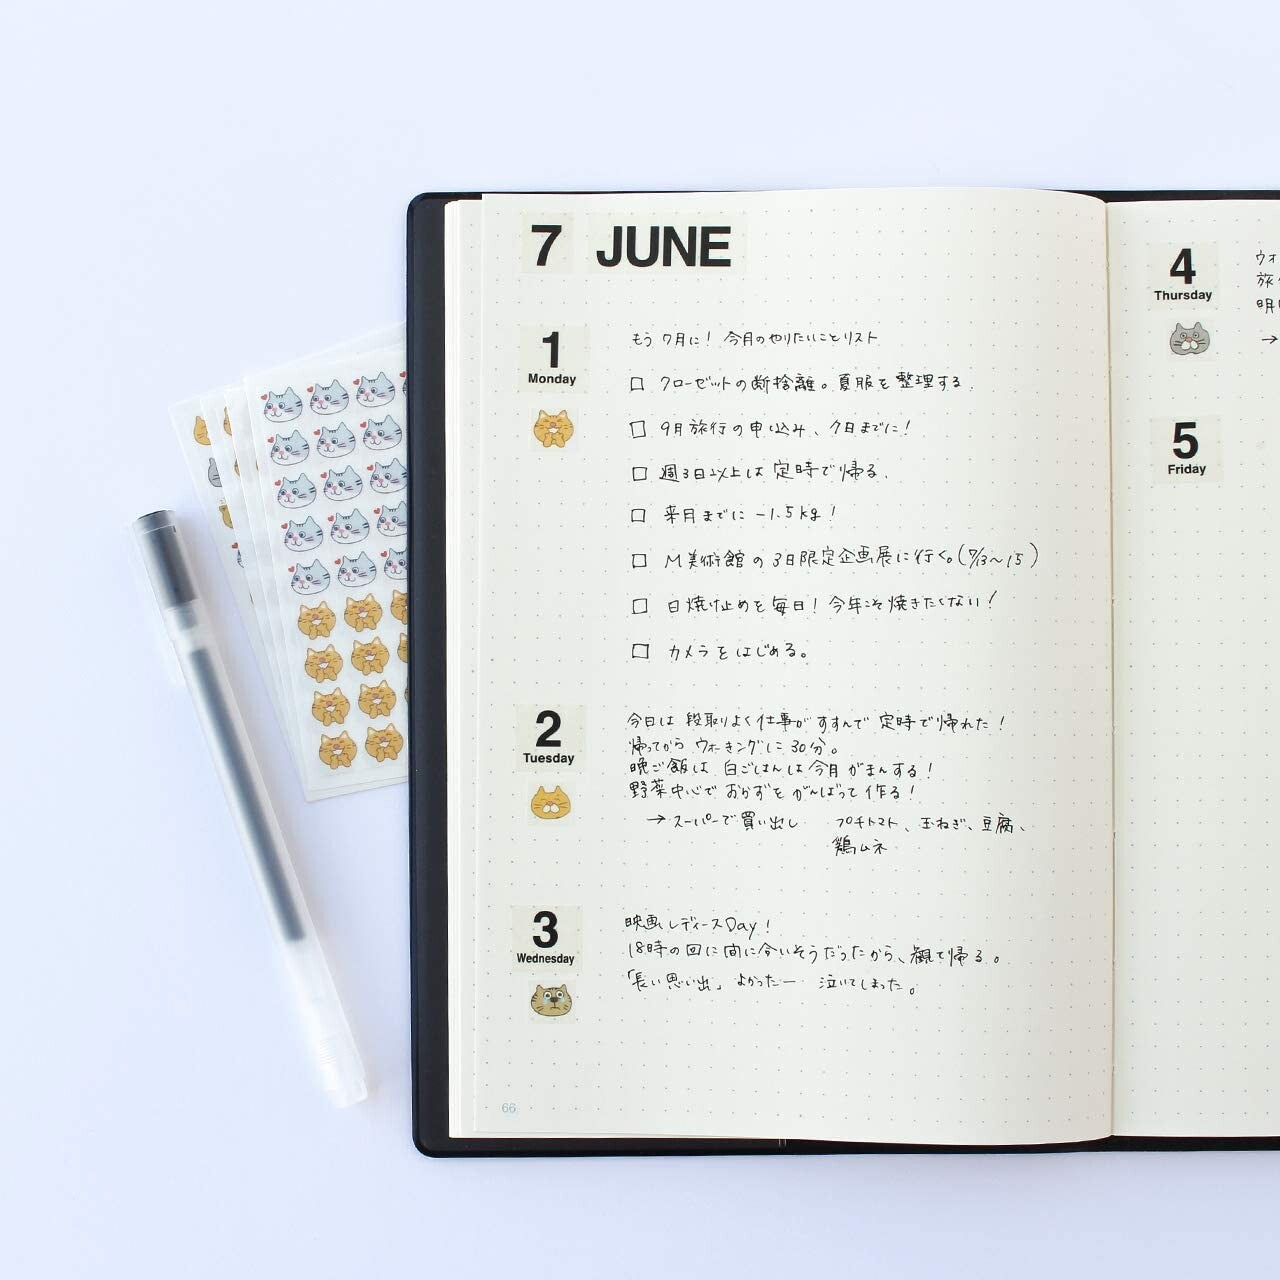 7 JUNE
1
Monday
もう7月に！今月のやりたいことリスト
□ クローゼットの断捨離。夏服を整理する。
□ 9月旅行の申し込み、今日までに！
□ 週3日以上は定時で帰る。
□ 来月までに －1.5kg！
□ M美術館の3日限定企画展に行く。（7/13〜15）
□ 日焼け止めを毎日！今年こそ焼きたくない！
□ カメラをはじめる。
2
Tuesday
今日は段取りよく仕事がすすんで定時で帰れた！
帰ってからウォーキングに30分。
晩ご飯は白ごはんは今月がまんする！
野菜中心でおかずをがんばって作る！
→スーパーで買い出し　プチトマト、玉ねぎ、豆腐、
鶏ムネ
3
Wednesday
映画レディースDay！
18時の回に間に合いそうだったから、観て帰る。
「長い思い出」よかったー　泣いてしまった。
66
4
Thursday
ウォ
旅
明
→
5
Friday